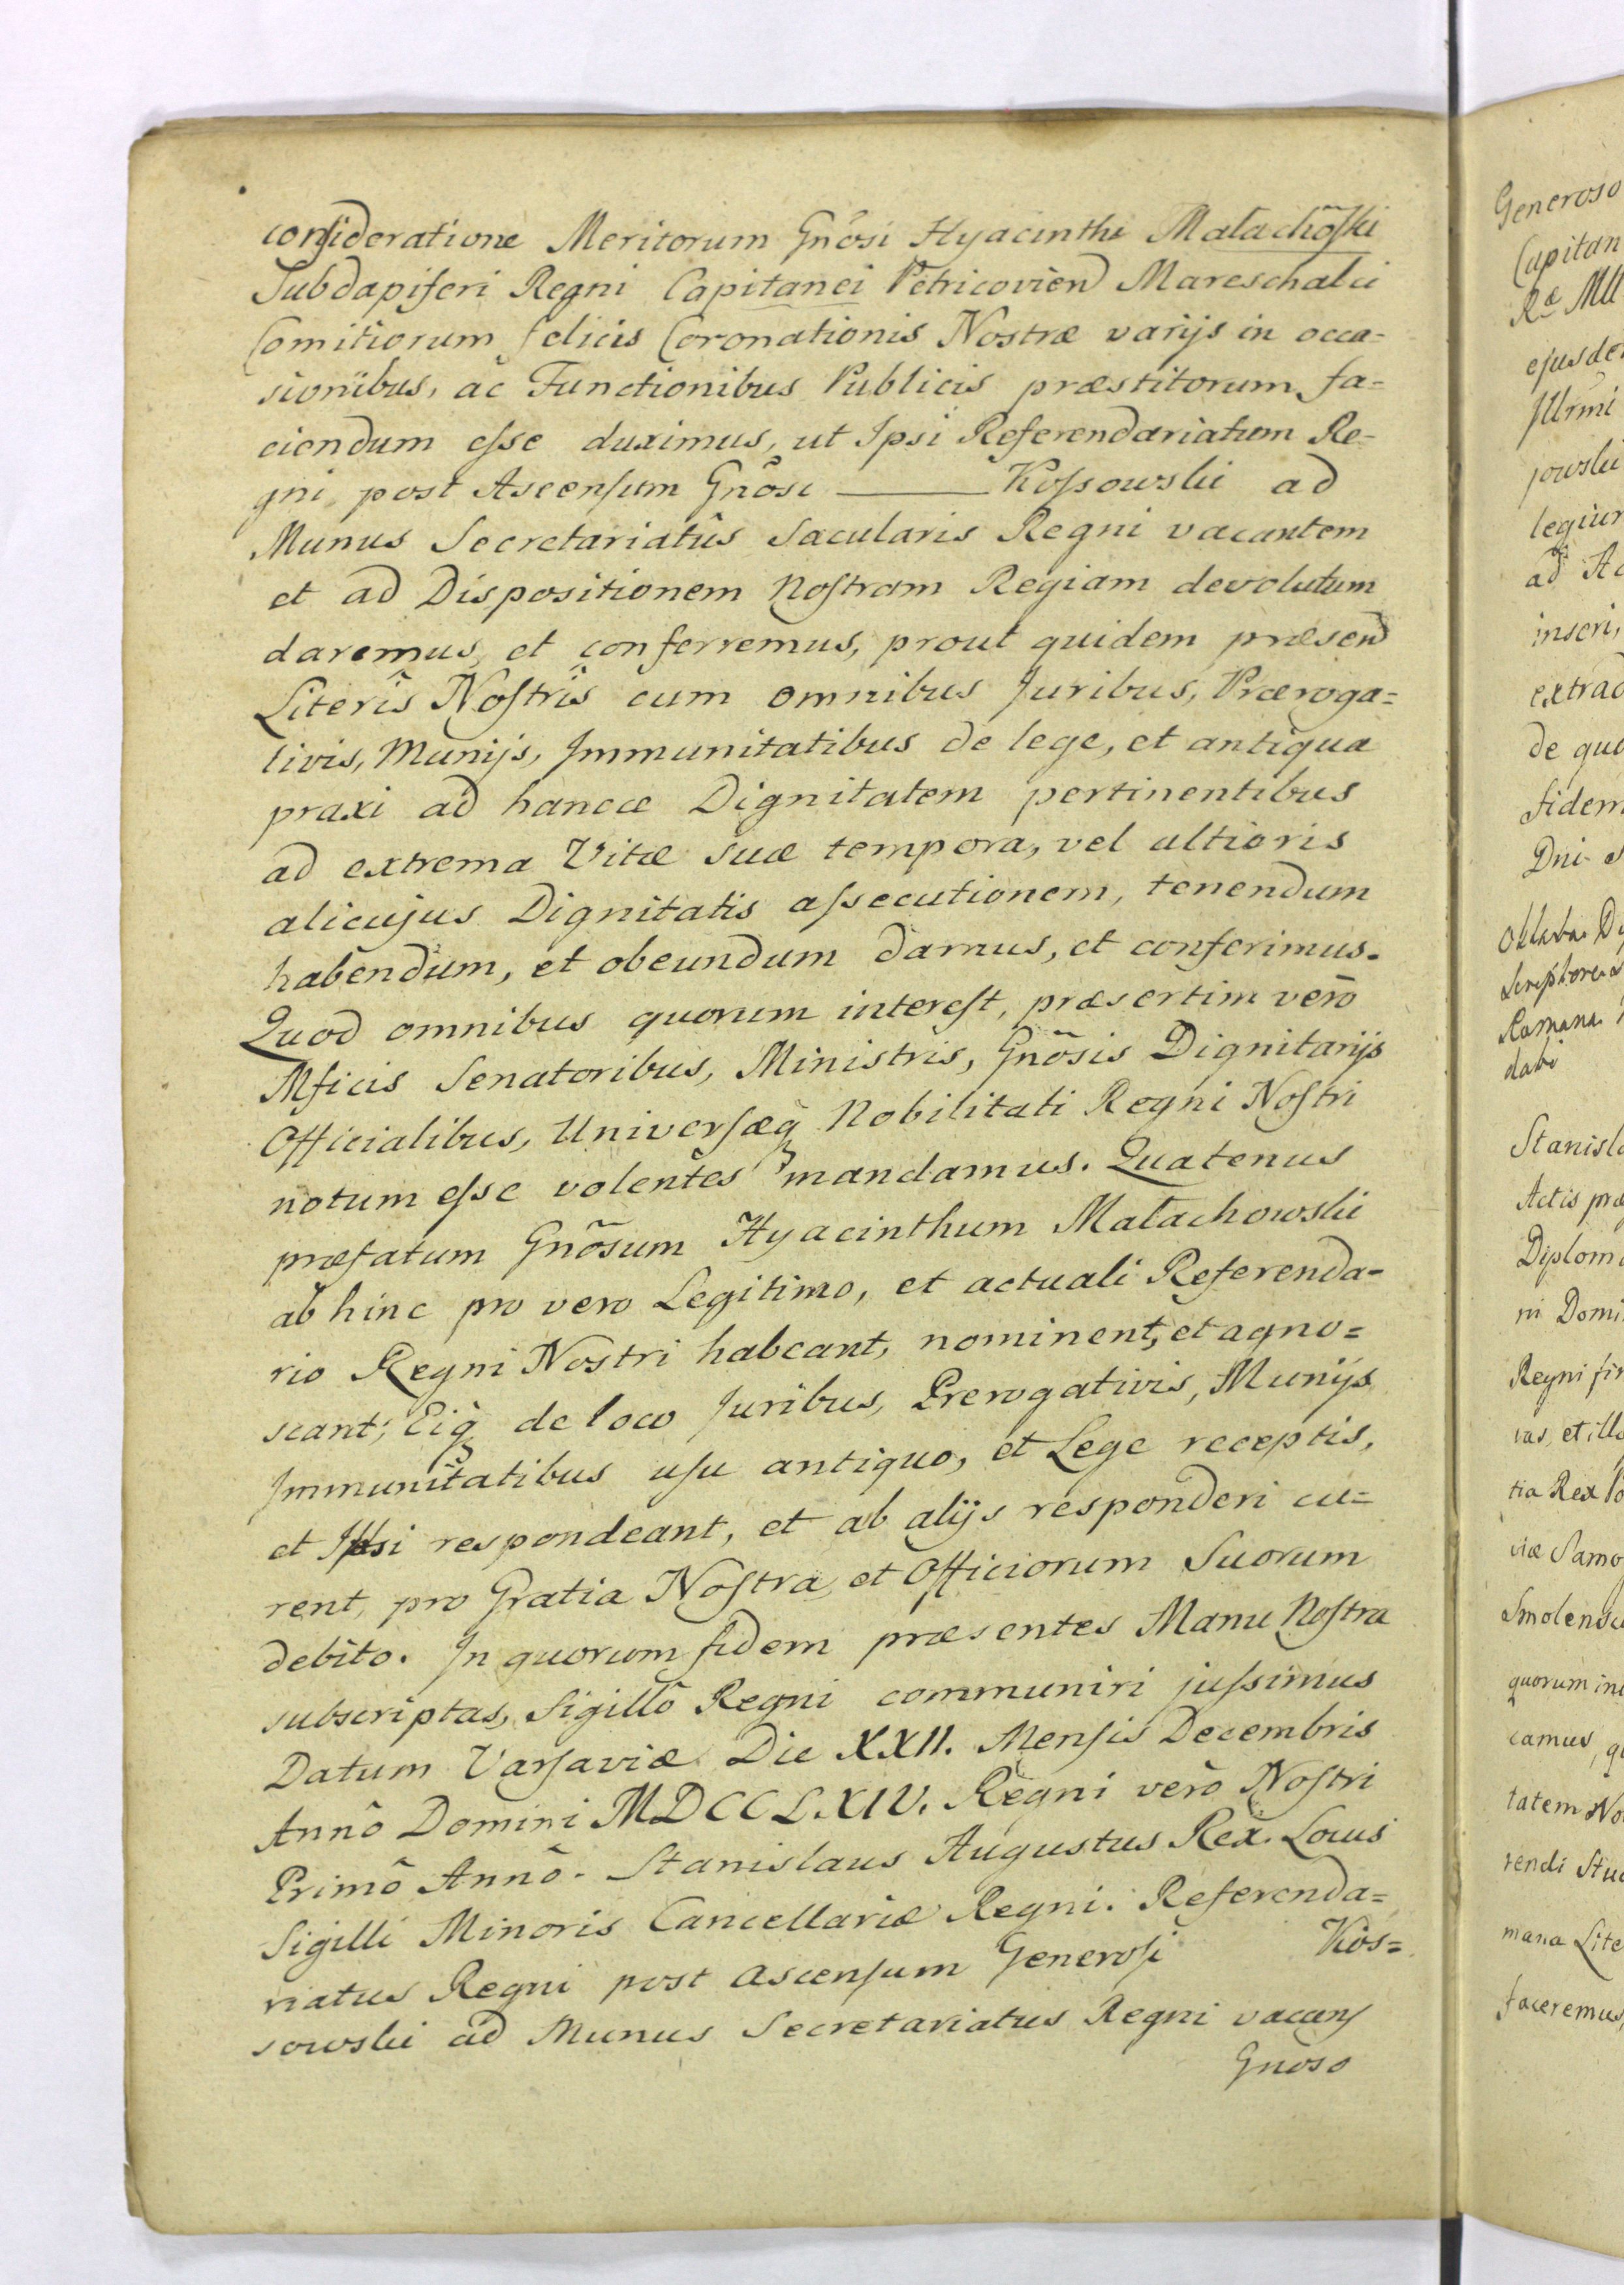 consideratione Meritorum Gñosi Hyacinthi Małachõski
Subdapiferi Regni Capitanei Petricovien Mareschalci
Comitiorum felicis Coronationis Nostræ varijs in occa=
sionibus, ac Functionibus Publicis præstitorum fa=
ciendum esse duximus, ut Ipsi Referendariatum Re=
gni post Ascensum Gñosi ——— Kossowski ad
Munus Secretariatûs Sæcularis Regni vacantem
et ad Dispositionem Nostram Regiam devolutum
daremus, et conferremus, prout quidem præsen
Literîs Nostrîs cum omnibus Juribus, Præroga=
tivis, Munijs, Immunitatibus de lege, et antiqua
praxi ad hancce Dignitatem pertinentibus
ad extrema Vitæ suæ tempora, vel altioris
alicujus Dignitatis assecutionem, tenendum
habendum, et obeundum damus, et conferimus.
Quod omnibus quorum interest, præsertim verò
Mficis Senatoribus, Ministris, Gñosis Dignitarijs
Officialibus, Universæq Nobilitati Regni Nostri
notum esse volentes mandamus. Quatenus
præfatum Gñosum Hyacinthum Małachowski
ab hinc pro vero Legitimo, et actuali Referenda=
rio Regni Nostri habeant, nominent, et agno=
scant; Eiq de loco Juribus, Prerogativis, Munijs
Immunitatibus usu antiquo, et Lege receptis,
et Ipsi respondeant, et ab alijs responderi cu=
rent, pro Gratia Nostra, et Officiorum Suorum
debito. In quorum fidem præsentes Manu Nostra
subscriptas, Sigillô Regni communiri jussimus
Datum Varsaviæ Die XXII. Mensis Decembris
Annô Domini MDCCLXIV. Regni verò Nostri
Primô Annô. Stanislaus Augustus Rex. Locus
Sigilli Minoris Cancellariæ Regni. Referenda=
riatus Regni post ascensum Generosi Kos=
sowski ad Munus Secretariatus Regni vacans
Gnoso
Generoso
Capitan
Ræ Mtt
ejusde
Illrmi
jowski
inseri,
extrad
de quo
fidem
Dni
Romana
Stanisl
Actis præ
Diplom
ni Domi
Regni fir
vas, et ill
tia Rex
viæ Samo
Smolensc
quorum in
camus, q
tatem No
rendi Stu
mana Lite
faceremus,